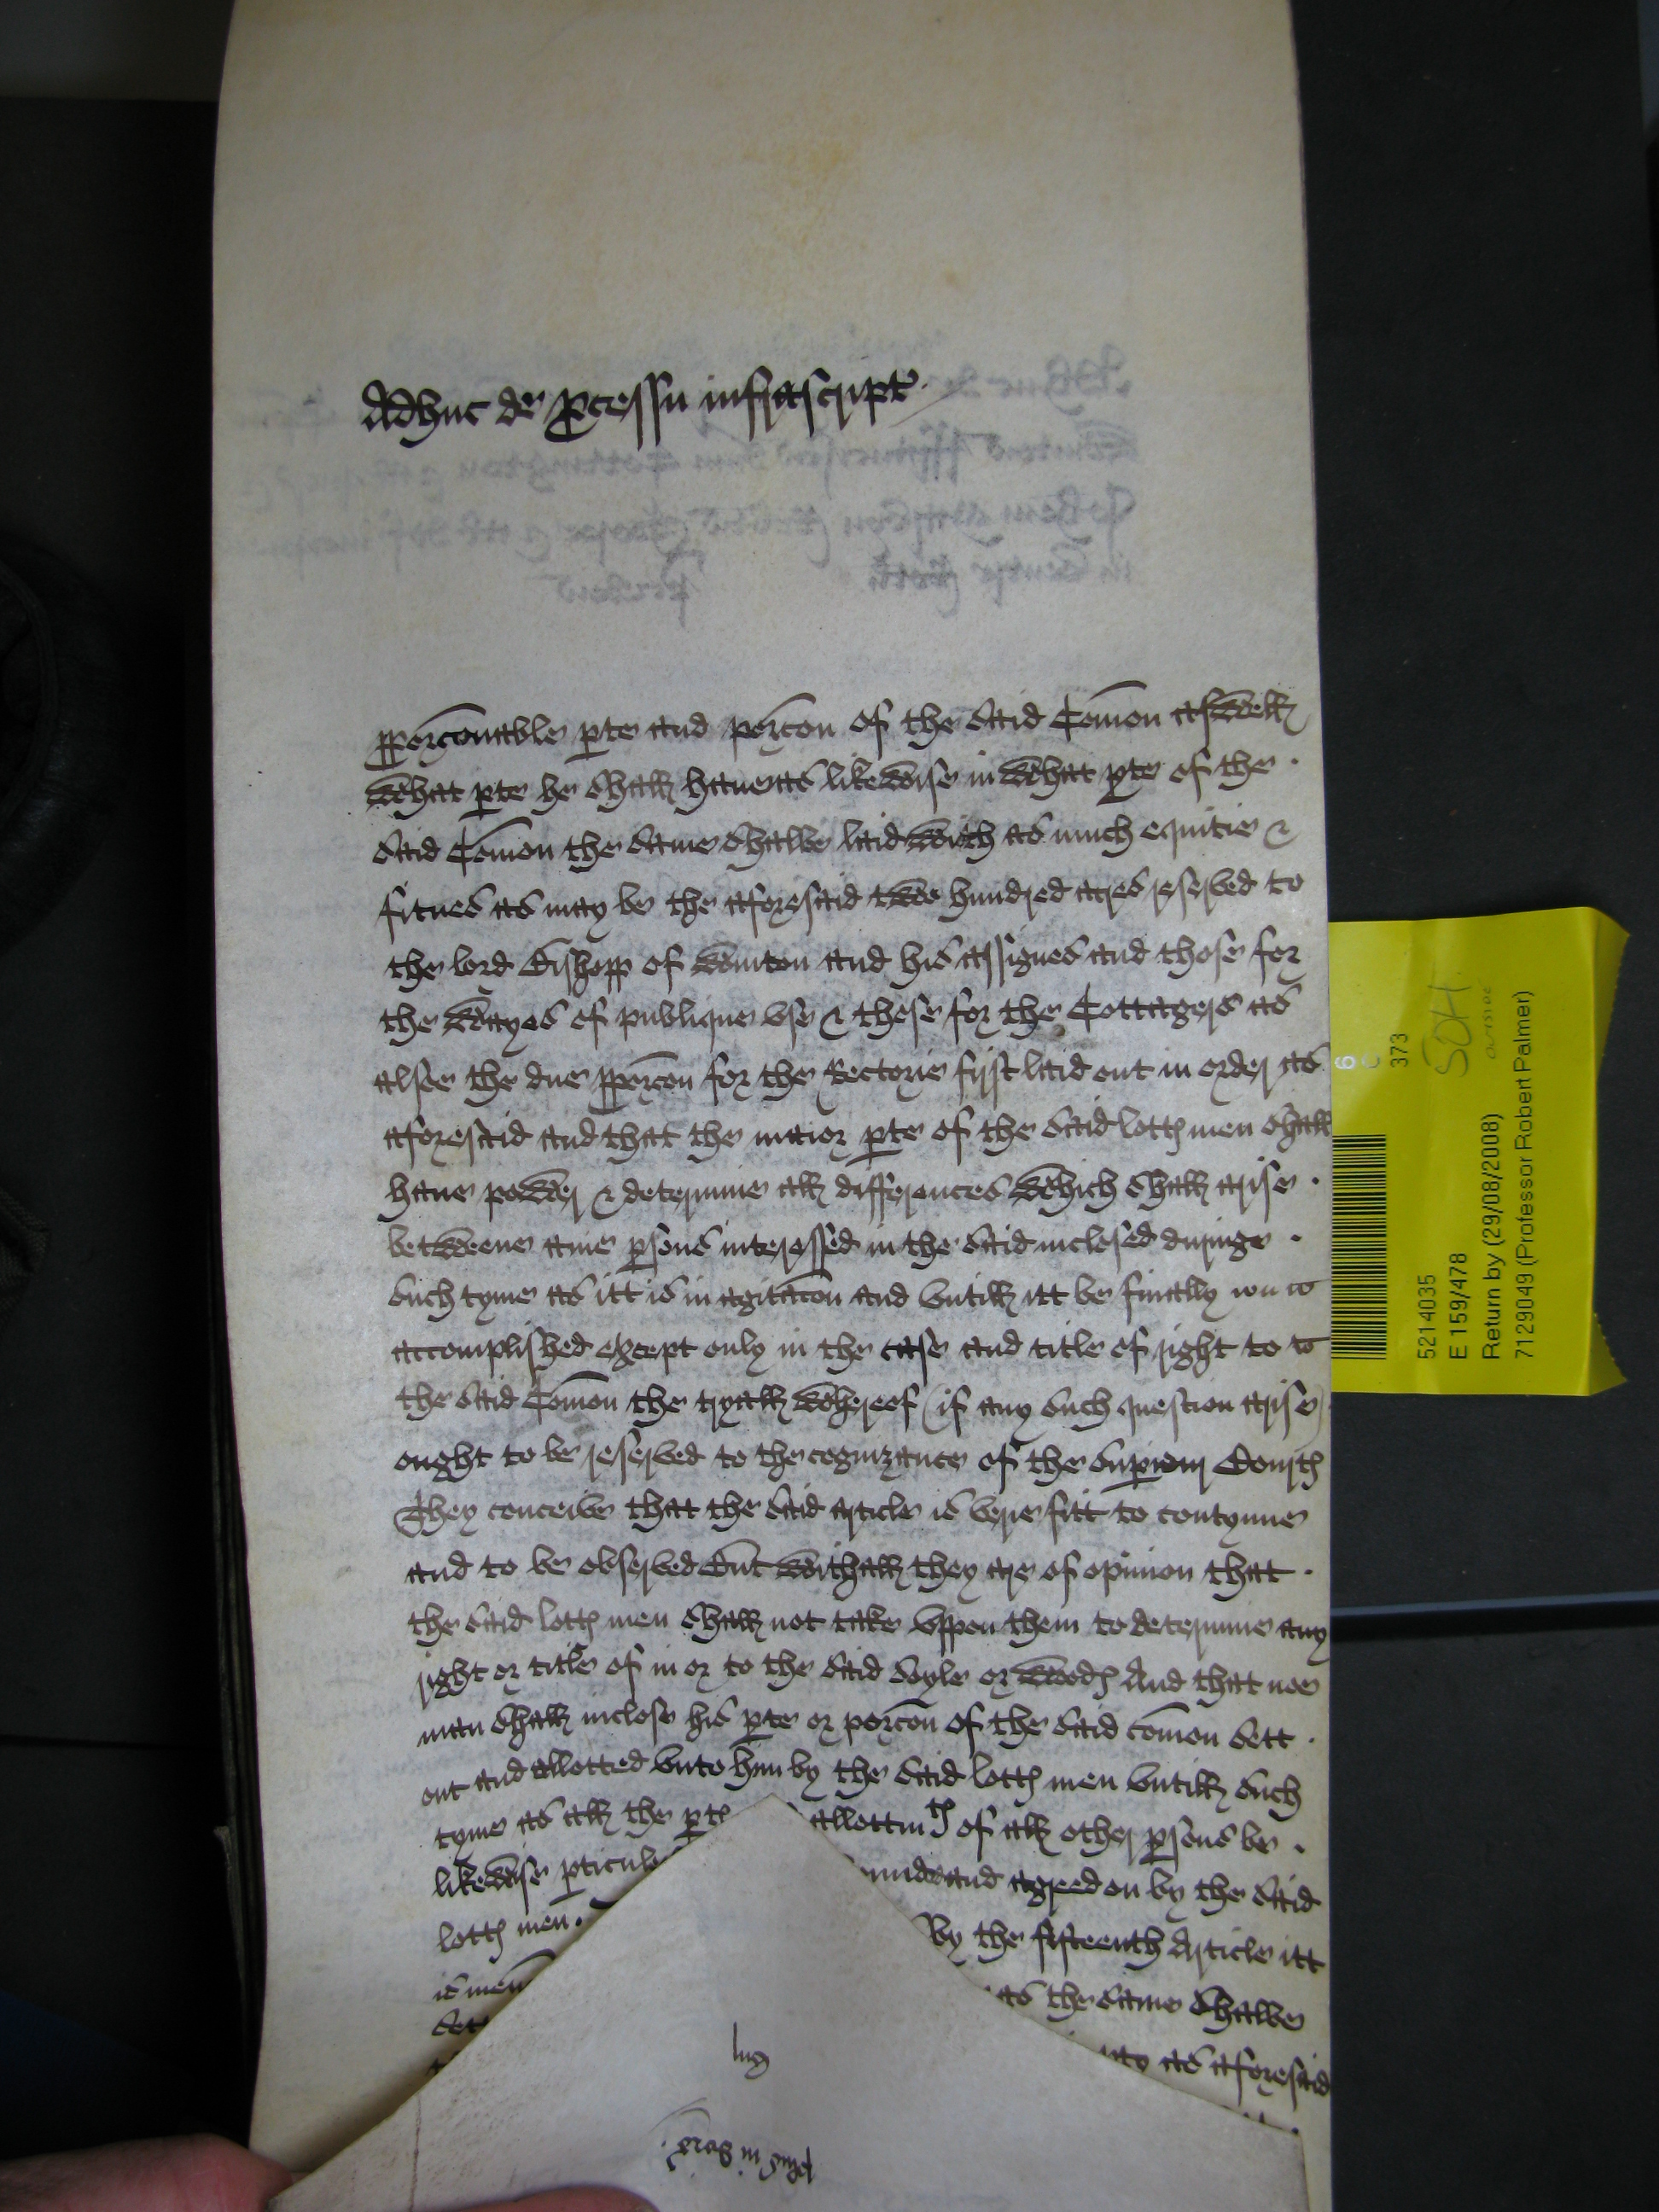 Adhuc de p̱cessu infrascript'
p̱porc̄onable p̱te and porc̄on of the said Com̄on aswell
what p̱te he shall haue as likewise in what p̱te of the
said Com̄on the same shalbe laid with as much equitie &
fitnes as may be the aforesaid two hundred acres reserved to
the lord Bishopp of Winton and his assignes and those for
the wayes of publique vse & these for the Cottagers as
alsoe the due p̱porc̄on for the Rectorie first laid out in order as
aforesaid and that the maior p̱te of the said lott men shall
haue power & determine all differences which shall arise
betweene anie p̱sons interessed in the said inclosed duringe
such tyme as itt is in agitac̄on and vntill itt be finally
accomplished except only in the case and title of right to
the said Com̄on the tryall whereof (if any such question arise)
ought to be reserved to the cognizance of the
They conceive that the said article is verie fitt to contynue
and to be observed But withall they are of opinion that
the said lott men shall not take vppon them to determine any
right or title of in or to the said soyle or woods And that noe
man shall inclose his p̱te or porc̄on of the said com̄on sett
out and allotted vnto him by the said lott men vntill such
tyme as all the p̱te allottmts of all other p̱sons be
likewise and agreed on by the said
lott men. By the fifteenth Article itt
is as the same shalbe
as aforesaid
6
373
SOH
5214035
E 159/478
Return by (29/08/2008)
7129049 (Professor Robert Palmer)